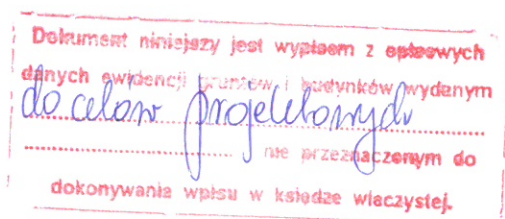 Dokument niniejszy jest wypisem z opisowych
danych ewidencji gruntów i budynków wydanym
do celów projektowych
nie przeznaczonym do
dokonywania wpisu w księdze wieczystej.